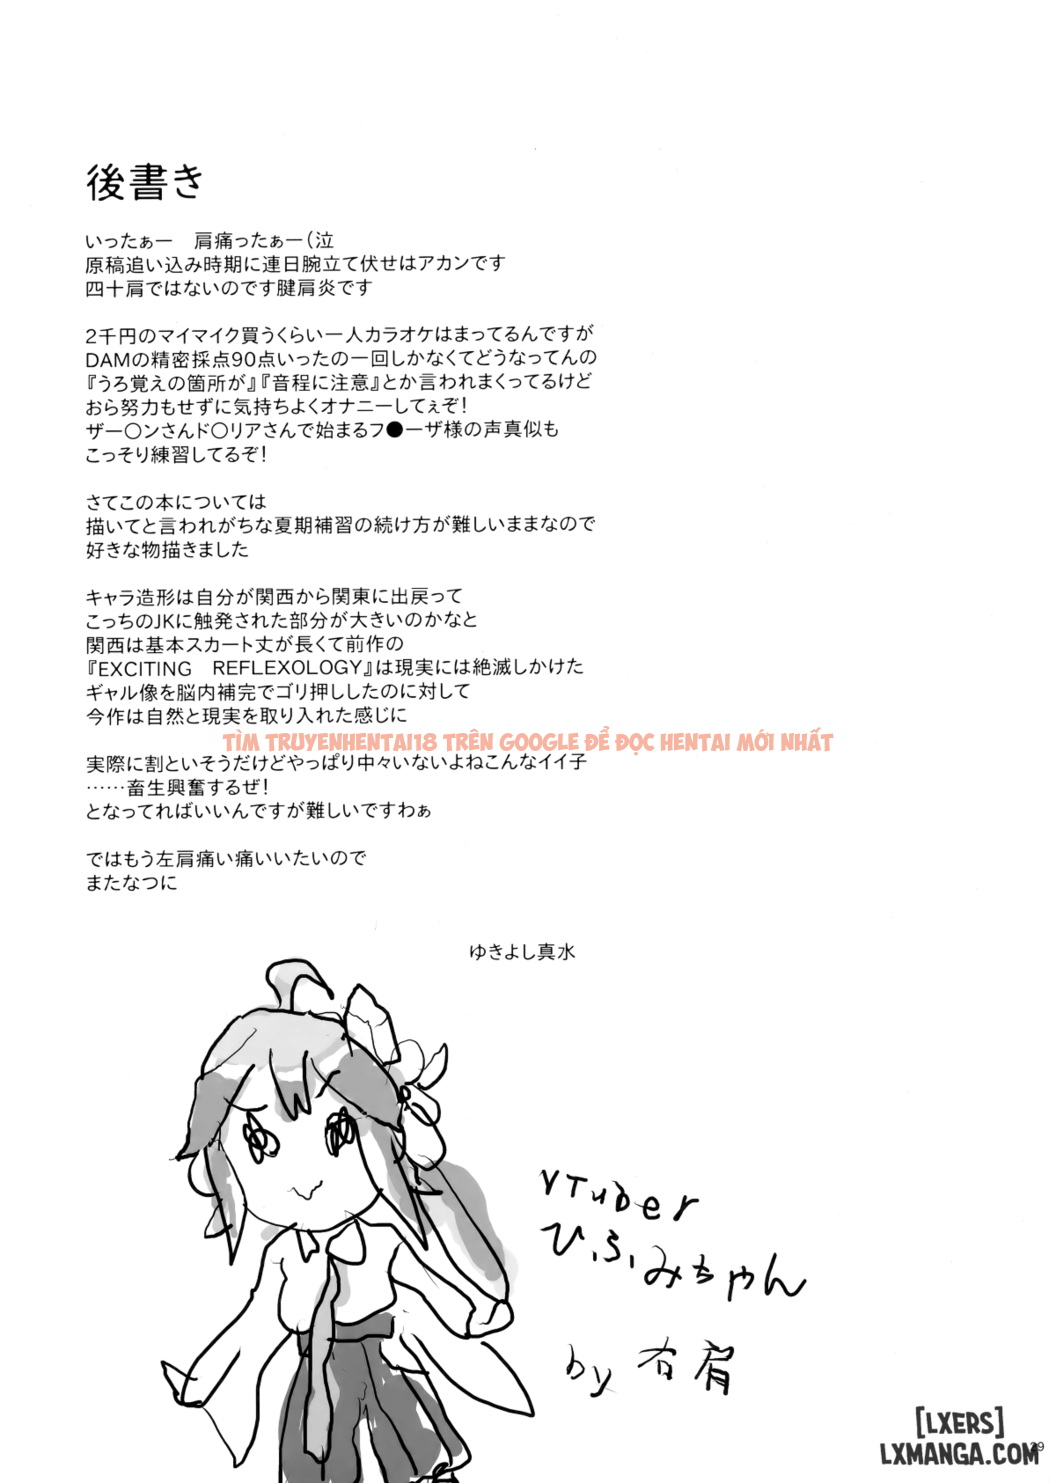 後書き
いったぁー　肩痛ったぁー（泣
原稿追い込み時期に連日腕立て伏せはアカンです
四十肩ではないのです腱肩炎です
2千円のマイマイク買うくらい一人カラオケはまってるんですが
DAMの精密採点90点いったの一回しかなくてどうなってんの
『うろ覚えの箇所が』『音程に注意』とか言われまくってるけど
おら努力もせずに気持ちよくオナニーしてぇぞ！
ザー〇ンさんド〇リアさんで始まるフ●ーザ様の声真似も
こっそり練習してるぞ！
さてこの本については
描いてと言われがちな夏期補習の続け方が難しいままなので
好きな物描きました
キャラ造形は自分が関西から関東に出戻って
こっちのJKに触発された部分が大きいのかなと
関西は基本スカート丈が長くて前作の
『EXCITING　REFLEXOLOGY』は現実には絶滅しかけた
ギャル像を脳内補完でゴリ押ししたのに対して
今作は自然と現実を取り入れた感じに
TÌM TRUYENHENTAI18 TRÊN GOOGLE ĐỂ ĐỌC HENTAI MỚI NHẤT
実際に割といそうだけどやっぱり中々いないよねこんなイイ子
……畜生興奮するぜ！
となってればいいんですが難しいですわぁ
ではもう左肩痛い痛いいたいので
またなつに
ゆきよし真水
VTuber
ひふみちゃん
by 右肩
[LXERS]
29
LXMANGA.COM